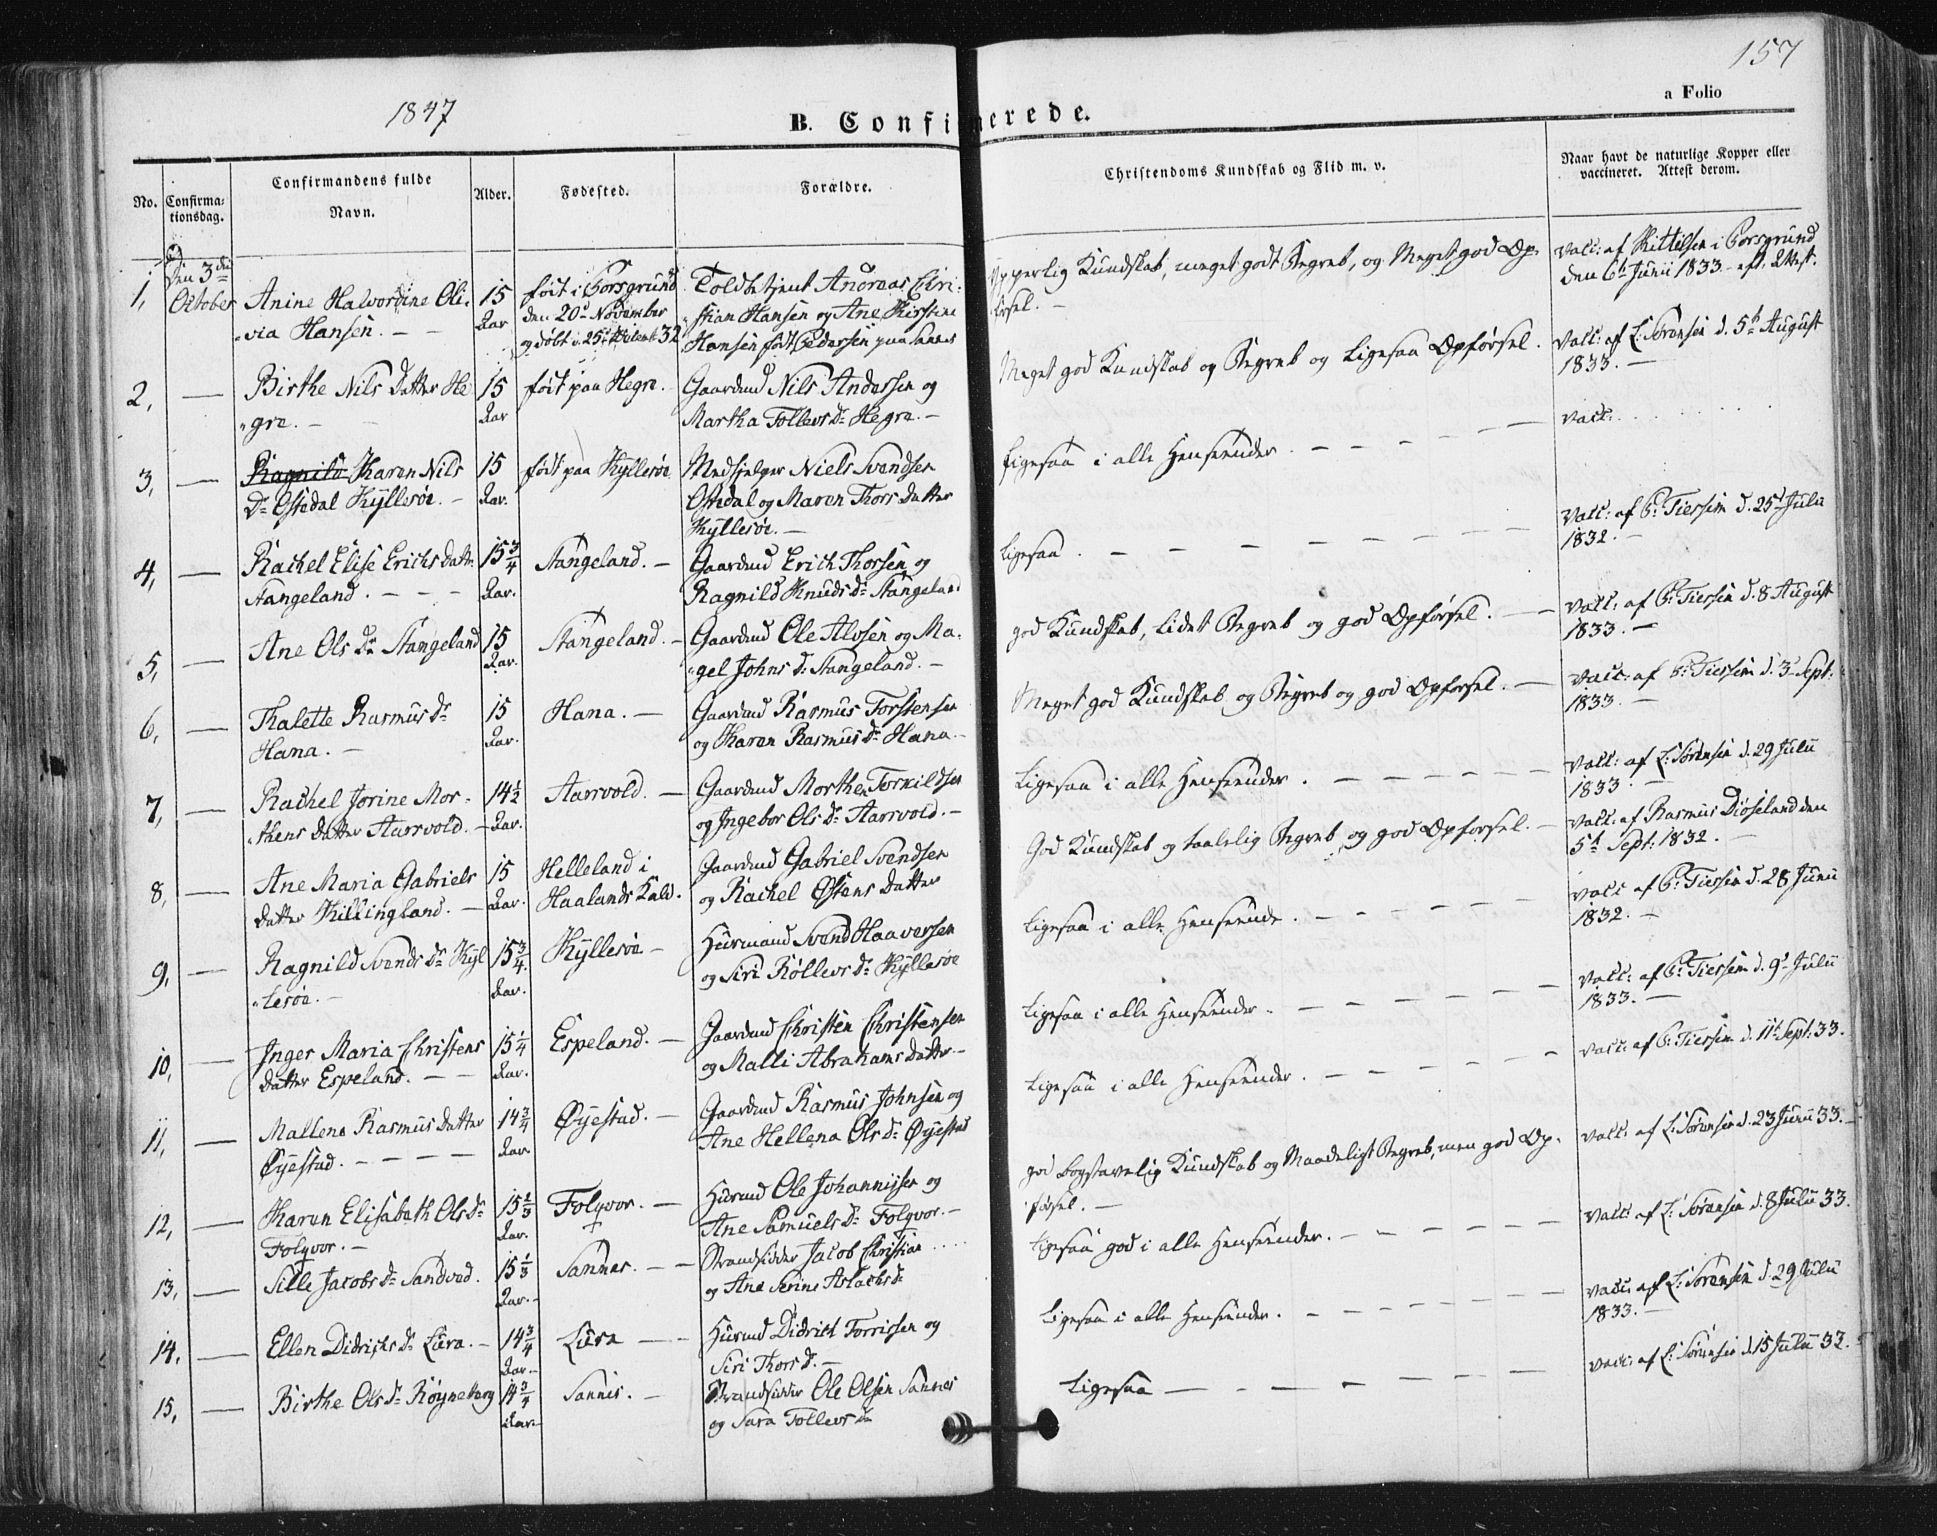 157
a Folio
1847
B. Confirmerede.
No.
Confirma-
tionsdag.
Confirmandens fulde
Navn.
Alder.
Fødested.
Forældre.
Christendoms Kundskab og Flid m. v.
Naar havt de naturlige Kopper eller
vaccineret. Attest derom.
Den 3die
October
1, Anine Halvordine Oli-
via Hansen. 15 Aar
født i Porsgrund
den 20d November
og døbt d. 25d 32
Toldbetjent Andreas Chri-
stian Hansen og Ane Kirstine
Hansen født Pedersen paa Sannes
Ypperlig Kundskab, meget godt Begreb, og Meget god Op-
førsel.
Vacc: af Kittelsen i Porsgrund
den 6te Junii 1833 eft. Attest.
2, — Birthe Nils Datter He
gre. 15 Aar
født paa Hegre.
Gaardmd Nils Andersen og
Martha Tollevs Dr Hegre.
Meget god Kundskab og Begreb og ligesaa Opførsel.
Vacc: af L: Sørensen d. 5te August
1833.
3, — Ragnild Karen Nils
Dr Østedal Kyllesøe. 15 Aar.
født paa Kyllesøe
Medhjelper Niels Svendsen
Østedal og Maren Thors Datter
Kyllesøe.
ligesaa i alle Henseender.
Vacc:
4, — Rachel Elise Erichs Datter
Stangeland. 15 3/4 Aar.
Stangeland.
Gaardmd Erich Thorsen og
Ragnild Knuds Dr Stangeland
ligesaa.
Vacc: af P: Tiersen d. 25d Julii
1832.
5, — Ane Ols Dr Stangeland 15 Aar.
Stangeland.
Gaardmd Ole Alvsen og Ma-
gel Johns Dr Stangeland.
god Kundskab, lidet Begreb og god Opførsel.
Vacc: af P: Tiersen d. 8 August
1833.
6, — Thalette Rasmus Dr
Hana. 15 Aar.
Hana.
Gaardmd Rasmus Torstensen
og Karen Rasmus Dr Hana.
Meget god Kundskab og Begreb og god Opførsel.
Vacc: af P: Tiersen d. 3 Sept:
1833.
7, — Rachel Jorine Mor-
thens Datter Aarrvold. 14 1/2 Aar.
Aarrvold.
Gaardmd Morthen Torkildsen
og Ingebor Ols Dr Aarrvold.
Ligesaa i alle Henseender.
Vacc: af L: Sørensen d. 29 Julii
1833.
8, — Ane Maria Gabriels
Datter Killingland. 15 Aar.
Helleland i
Haalands Kald.
Gaardmd Gabriel Svendsen
og Rachel Østens Datter
God Kundskab og taalelig Begreb, og god Opførsel.
Vacc: af Rasmus Diøseland den
5te Sept: 1832.
9, — Ragnild Svends Dr Kyl
lesøe. 15 3/4. Aar.
Kyllesøe
Huusmand Svend Haaversen
og Siri Rollevs Dr Kyllesøe
ligesaa i alle Henseende.
Vacc af P: Tiersen d. 28 Junii
1832.
10, — Inger Maria Christens
Datter Espeland. 15 1/4 Aar.
Espeland.
Gaardmd Christen Christensen
og Malli Abrahams Datter
Ligesaa i alle Henseender.
Vacc: af P: Tiersen d. 9d Julii
1833.
11, — Mallene Rasmus Datter
Øyestad. 14 3/4 Aar.
Øyestad.
Gaardmd Rasmus Johnsen og
Ane Hellena Ols Dr Øyestad
Ligesaa i alle Henseender.
Vacc: af P: Tiersen d. 11te Sept: 33.
12, — Karen Elisabeth Ols Dr
Folqvor. 15 2/3 Aar.
Folqvor.
Huusmd Ole Johannissen og
Ane Samuels Dr Folqvor.
god bogstavelig Kundskab og Maadeligt Begreb, men god Op-
førsel.
Vacc: af L: Sørensen d. 23 Junii 33.
13, — Sille Jacobs Dr Sandved. 15 1/3 Aar.
Sannes.
Strandsidder Jacob Christian
og Ane Serine Aslachs Dr
ligesaa god i alle Henseender.
Vacc: af L: Sørensen d. 8 Julii 33.
14, — Ellen Didrichs Dr Lura. 14 3/4 Aar.
Lura
Huusmd Didrich Torrissen og
Siri Thors Dr.
Ligesaa i alle Henseender.
Vacc: af L: Sørensen d. 29 Julii
1833.
15, — Birthe Ols Dr Røyneberg 14 3/4 Aar.
Sannes.
Strandsidder Ole Olsen Sannes
og Sara Tollevs Dr
Ligesaa
Vacc: af L: Sørensen d. 15 Julii 32.